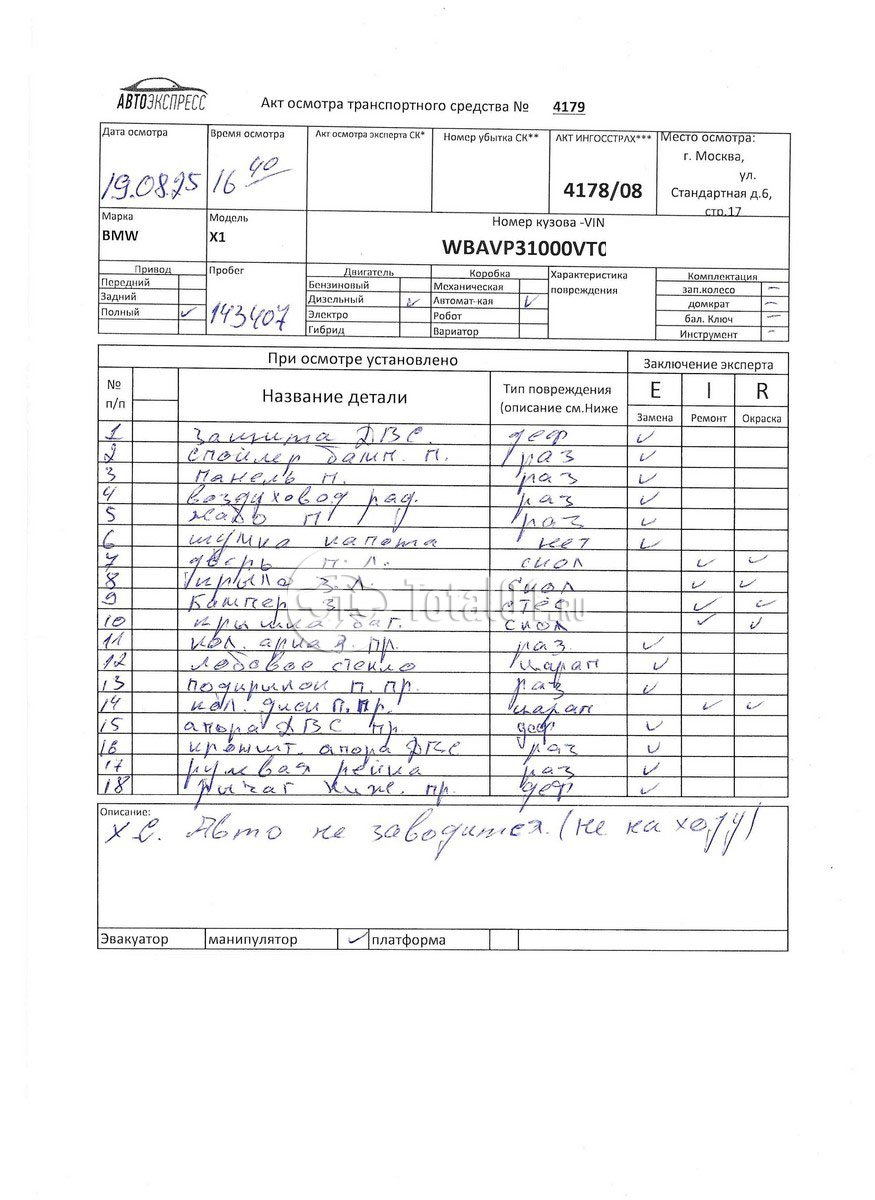 АВТОЭКСПРЕСС
Акт осмотра транспортного средства № 4179
Дата осмотра Время осмотра Акт осмотра эксперта СК* Номер убытка СК** АКТ ИНГОССТРАХ*** Место осмотра:
19.08.25 16 40 4178/08 г. Москва,
ул.
Стандартная д.6,
стр.17
Марка Модель Номер кузова -VIN
BMW X1 WBAVP31000VT0
Привод Пробег Двигатель Коробка Характеристика повреждения Комплектация
Передний Бензиновый Механическая зап.колесо –
Задний Дизельный ✓ Автомат-кая ✓ домкрат –
Полный ✓ 143407 Электро Робот бал. Ключ –
Гибрид Вариатор Инструмент –
При осмотре установлено Заключение эксперта
№ п/п Название детали Тип повреждения (описание см.Ниже E I R
Замена Ремонт Окраска
1 защита ДВС. деф ✓
2 спойлер бамп. п. раз ✓
3 панель п. раз ✓
4 воздуховод рад. раз ✓
5 жабо п раз ✓
6 шумка капота нет ✓
7 дверь п. л. скол ✓ ✓
8 крыло з. л. скол ✓ ✓
9 бампер з стёс ✓ ✓
10 крышка баг. скол ✓ ✓
11 кол. арка з. пр. раз. ✓
12 лобовое стекло царап ✓
13 подкрылок п. пр. раз ✓
14 кол. диск п. пр. царап ✓ ✓
15 апора ДВС пр. деф ✓
16 кроншт. апора ДВС раз ✓
17 рулевая рейка раз ✓
18 рычаг ниж. пр. деф ✓
Описание:
Х С. Авто не заводится. (не на ходу)
Эвакуатор манипулятор ✓ платформа
Total01.RU